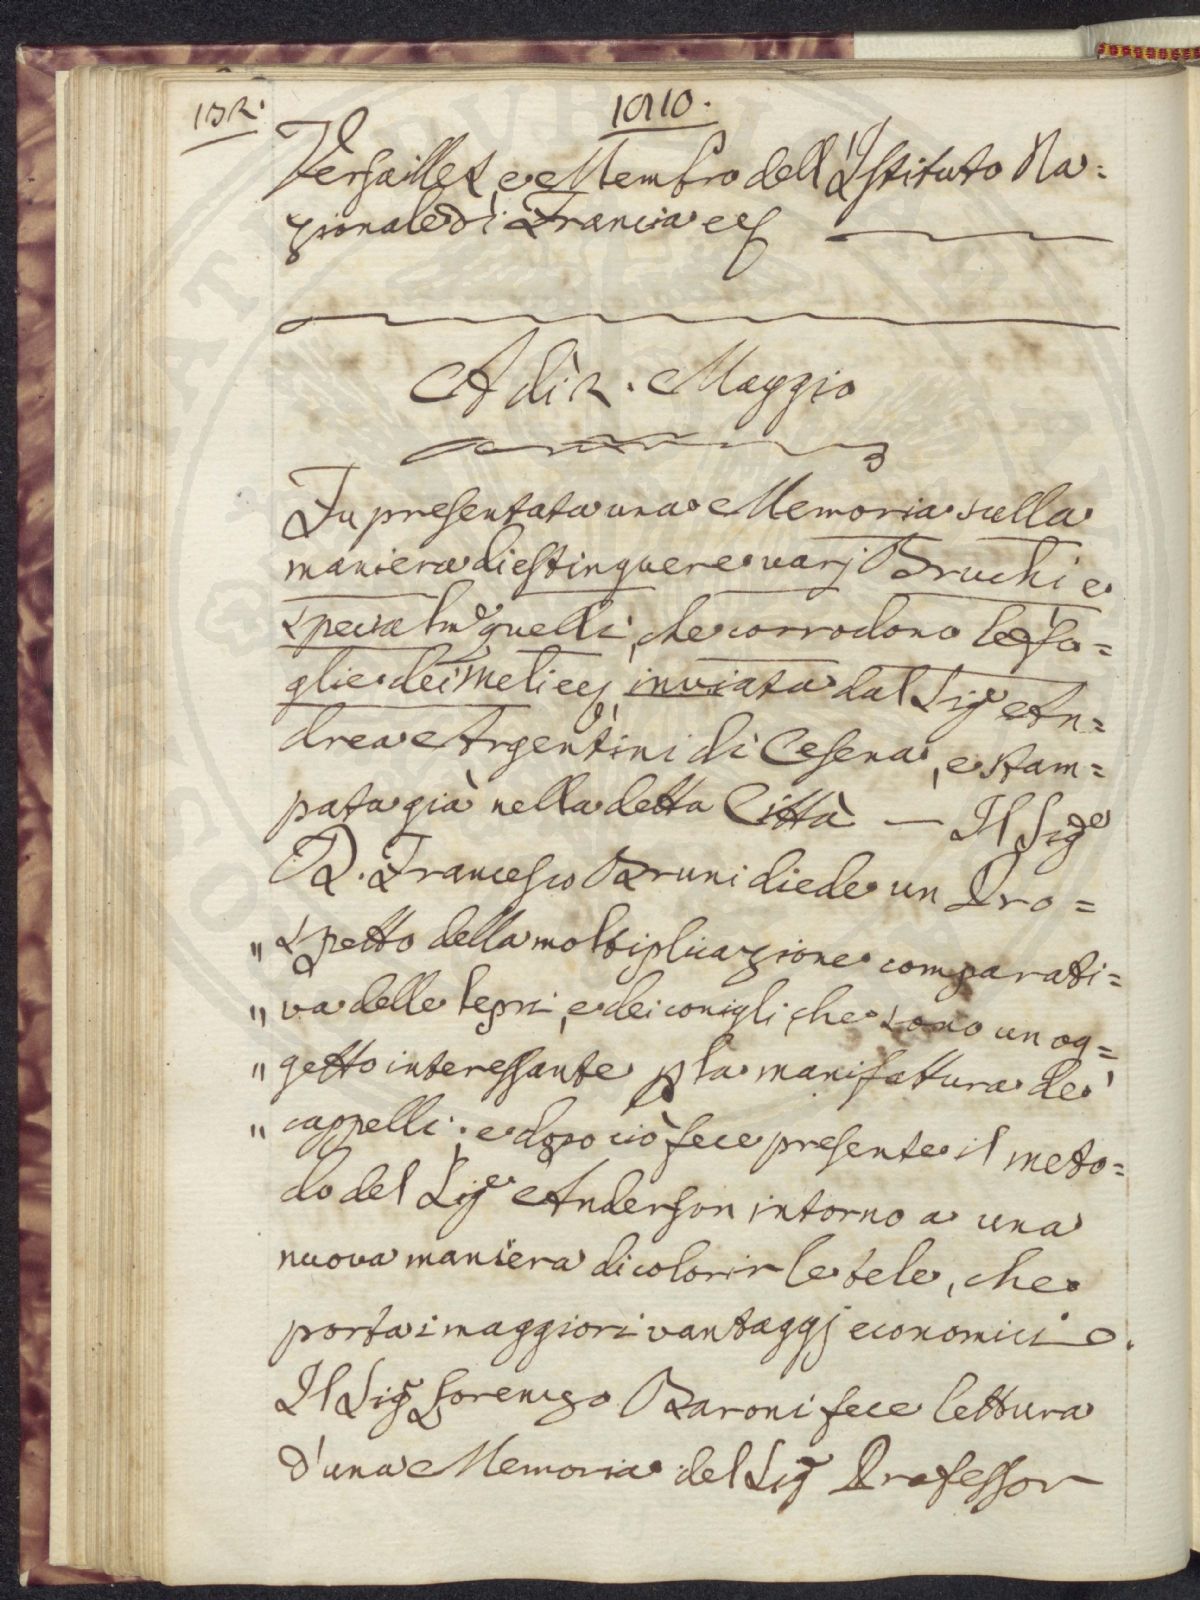 132.
1810.
Versailles, e Membro dell'Istituto Na=
zionale di Francia ec
Adì 2. Maggio
Fu presentata una Memoria sulla
maniera di estinguere varj Bruchi e
specialmᵉ quelli, che corrodono le fo=
glie dei Meli ec, inviata dal Sigᵉ An=
drea Argentini di Cesena, e stam=
pata già nella detta Città — Il Sigᵉ
D. Francesco Bruni diede un Pro=
" spetto della moltiplicazione comparati=
" va delle lepri, e dei conigli, che sono un og=
" getto interessante p la manifattura de'
" cappelli; e dopo ciò fece presente il meto=
do del Sigᵉ Anderson intorno a una
nuova maniera di colorir le tele, che
porta i maggiori vantaggj economici.
Il Sig Lorenzo Baroni fece lettura
d'una Memoria del Sig Professor